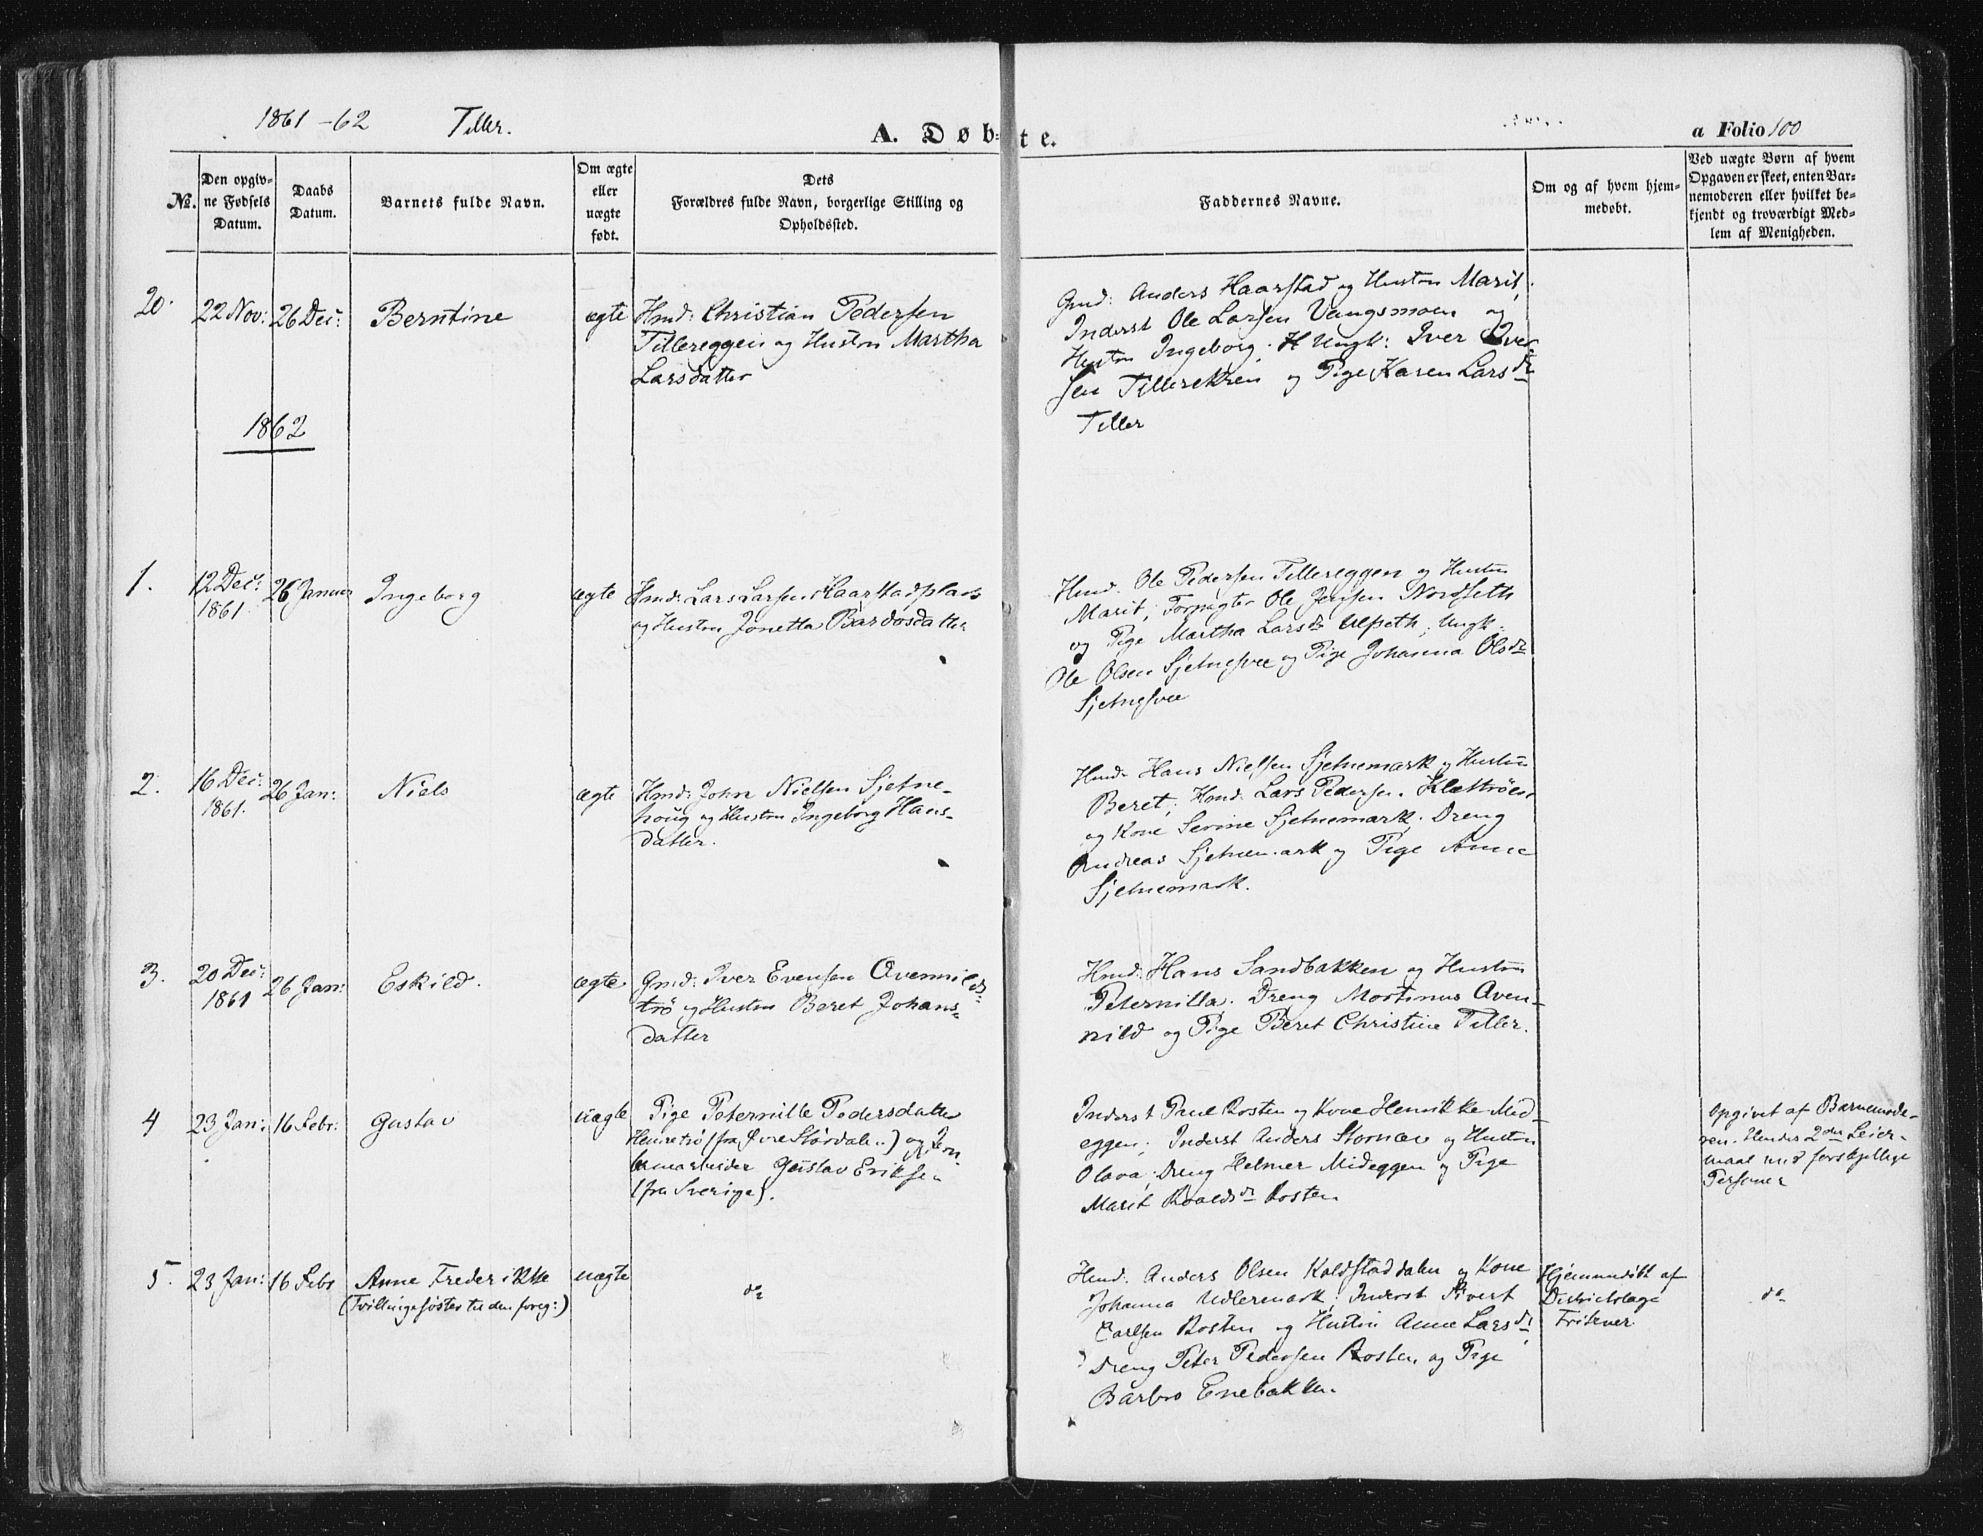 1861-62 Tiller.
A. Døbte.
a Folio 100
No.
Den opgiv-
ne Fødsels
Datum.
Daabs
Datum.
Barnets fulde Navn.
Om ægte
eller
uægte
født.
Dets
Forældres fulde Navn, borgerlige Stilling og
Opholdssted.
Faddernes Navne.
Om og af hvem hjem-
medøbt.
Ved uægte Børn af hvem
Opgaven er skeet, enten Bar-
nemoderen eller hvilket be-
kjendt og troværdigt Med-
lem af Menigheden.
20. 22 Nov: 26 Dec: Berntine ægte
Hmd: Christian Pedersen
Tillereggen og Hustru Martha
Larsdatter
Gmd: Anders Haarstad og Hustru Marit,
Inderst Ole Larsen Vangsmoen og
Hustru Ingeborg. Ungk: Iver Iver-
sen Tillerekren og Pige Karen Larsdr
Tiller
1862
1. 12 Dec: 1861. 26 Januar Ingeborg ægte
Hmd: Lars Larsen Haarstadplads
og Hustru Jonetta Bardosdatter
Hmd. Ole Pedersen Tillereggen og Hustru
Marit, Forpagter Ole Jensen Nordseth
og Pige Martha Larsdr Ulseth, Ungk.
Ole Olsen Sjetnesvee og Pige Johanna Olsdr
Sjetnesvee
2. 16 Dec: 1861. 26 Jan: Niels ægte
Hmd: John Nielsen Sjetne-
houg og Hustru Ingeborg Hans-
datter.
Hmd. Hans Nielsen Sjetnemark og Hustru
Beret, Hmd. Lars Pedersen Klettrøen
og Kone Serine Sjetnemark. Dreng
Andreas Sjetnemark og Pige Anne
Sjetnemark.
3. 20 Dec: 1861 26 Jan: Eskild. ægte
Gmd: Iver Evensen Qvennilds-
trø og Hustru Beret Johans-
datter
Hmd: Hans Sandbakken og Hustru
Peternilla. Dreng Mortinus Qven-
nild og Pige Beret Christine Tiller.
4 23 Jan: 16 Febr: Gustav uægte
Pige Peternille Pedersdatter
(fra Øvre Størdalen) og Jern-
banearbeider Gustav Eriksen
(fra Sverige).
Inderst Paul Rosten og Kone Henrikke Mid-
eggen, Inderst Anders Stornæve og Hustru
Olava, Dreng Helmer Mideggen og Pige
Marit Roaldsdr Rosten
Opgivet af Barnemode-
ren. Hendes 2den Leier-
maal med forskjellige
Personer
5. 23 Jan: 16 Febr Anne Frederikke uægte
(Tvillingesøster til den foreg:)
do
Hmd. Anders Olsen Koldstaddalen og Kone
Johanna Udlermark, Inderst Sivert
Carlsen Rosten og Hustru Anne Larsdr,
Dreng Peter Pedersen Rosten og Pige
Barbro Enebakken.
Hjemmedøbt af
Districtslæge
do